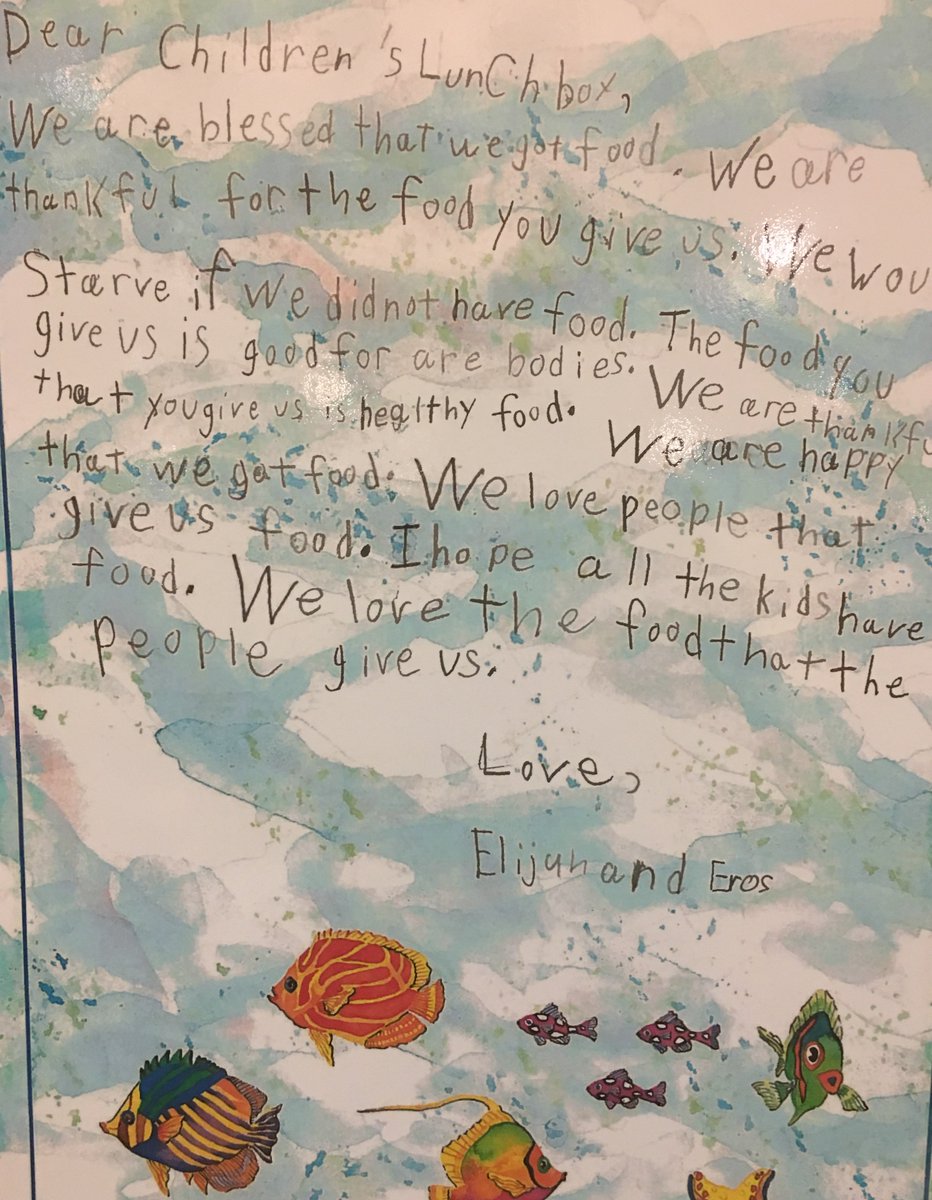 Dear Children's Lunchbox,
We are blessed that we got food. We are
thankful for the food you give us. We wou
Starve if we did not have food. The food you
give us is good for are bodies. We are thankfu
that you give us is healthy food. We are happy
that we got food. We love people that
give us food. I hope all the kids have
food. We love the food that the
people give us.
Love,
Elijuh and Eros